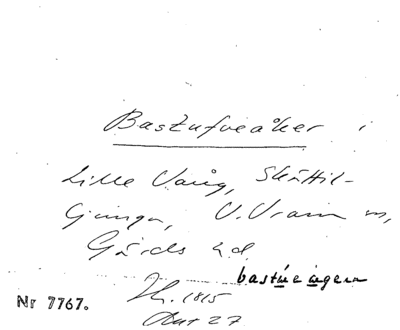 Bastufveåker i
Lille Vång, Skättil-
ljunga, V. Vram m,
Gärds hd.
bastueågern
Nr 7767.
1815
27